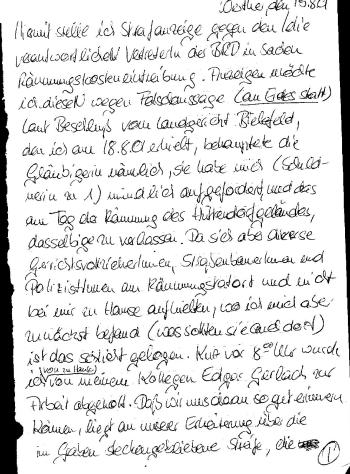 den 19.8.01
Hiermit stelle ich Strafanzeige gegen den/die
verantwortlichen VertreterIn der BRD in Sachen
Räumungskosteneintreibung. Anzeigen möchte
ich diesen wegen Falschaussage (an Eides statt)
Laut Beschluss vom Landgericht Bielefeld,
den ich am 18.8.01 erhielt, behauptete die
Gläubigerin nämlich, sie habe mich (Schuld-
nerin zu 1) mündlich aufgefordert, und das
am Tag der Räumung des Hüttendorfgeländes,
dasselbige zu verlassen. Da sich aber diverse
GerichtsvollzieherInnen, StraßenbauerInnen und
PolizistInnen am Räumungstatort und nicht
bei mir zu Hause aufhielten, wo ich mich aber
zunächst befand (was sollten sie auch dort)
ist das schlicht gelogen. Kurz vor 8⁰⁰ Uhr wurde
ich von zu Hause von meinem Kollegen Edgar Gerlach zur
Arbeit abgeholt. Daß wir uns daran so gut erinnern
können, liegt an unserer Erheiterung über die
im Graben steckengebliebene Streife, die
1